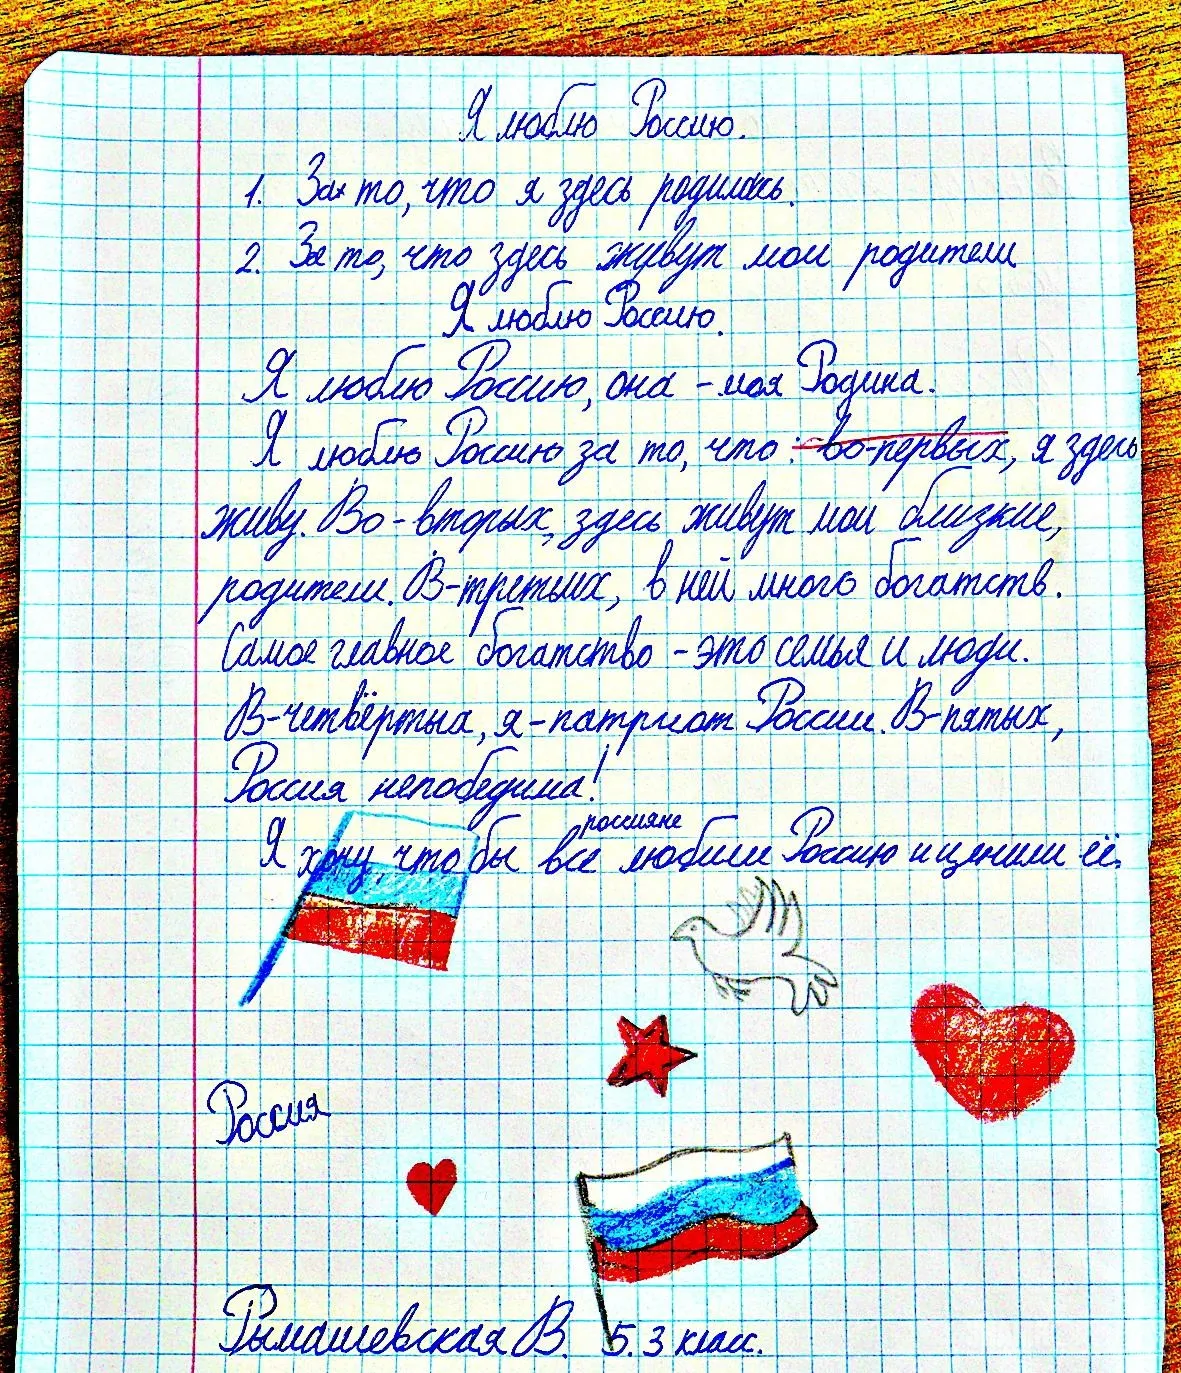 Я люблю Россию.
1. За то, что я здесь родилась.
2. За то, что здесь живут мои родители
Я люблю Россию.
Я люблю Россию, она - моя Родина.
Я люблю Россию за то, что: во-первых, я здесь
живу. Во-вторых, здесь живут мои близкие,
родители. В-третьих, в ней много богатств.
Самое главное богатство - это семья и люди.
В-четвёртых, я - патриот России. В-пятых,
Россия непобедима!
россияне
Я хочу, что бы все любили Россию и ценили её.
Россия
Рымашевская В. 5.3 класс.